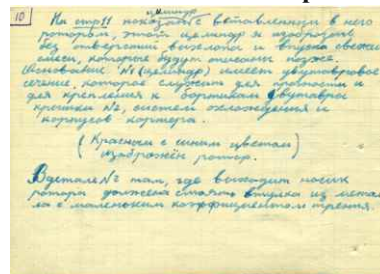 10
цилиндр
На стр. 11 показан с вставленным в него
ротором, этот цилиндр я изобразил
без отверстий выхлопа и впуска свежей
смеси, которые будут описаны позже.
Основание №1 (цилиндр) имеет двутавровое
сечение, которое служит для прочности и
для крепления к бортикам двутавра
крышки №2, систем охлаждения и
корпусов картера.
(Красным с синим цветом)
изображён ротор.
В детале №2 там, где выходит носик
ротора должна стоять втулка из метал
ла с маленьким коэффициентом трения.